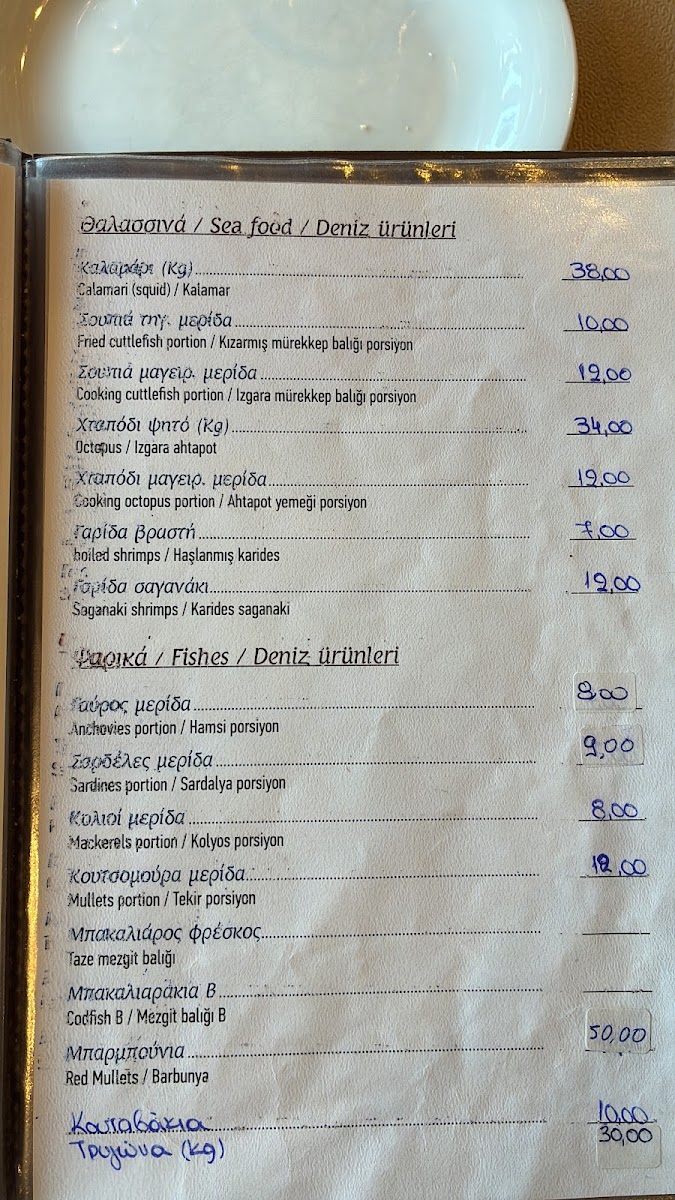 Θαλασσινά / Sea food / Deniz ürünleri
Καλαμάρι (Kg) 38,00
Calamari (squid) / Kalamar
Σουπιά τηγ. μερίδα 10,00
Fried cuttlefish portion / Kızarmış mürekkep balığı porsiyon
Σουπιά μαγειρ. μερίδα 12,00
Cooking cuttlefish portion / Izgara mürekkep balığı porsiyon
Χταπόδι ψητό (Kg) 34,00
Octopus / Izgara ahtapot
Χταπόδι μαγειρ. μερίδα 12,00
Cooking octopus portion / Ahtapot yemeği porsiyon
Γαρίδα βραστή 7,00
boiled shrimps / Haşlanmış karides
Γαρίδα σαγανάκι 12,00
Saganaki shrimps / Karides saganaki
Ψαρικά / Fishes / Deniz ürünleri
Γαύρος μερίδα 8,00
Anchovies portion / Hamsi porsiyon
Σαρδέλες μερίδα 9,00
Sardines portion / Sardalya porsiyon
Κολιοί μερίδα 8,00
Mackerels portion / Kolyos porsiyon
Κουτσομούρα μερίδα 12,00
Mullets portion / Tekir porsiyon
Μπακαλιάρος φρέσκος
Taze mezgit balığı
Μπακαλιαράκια Β
Codfish B / Mezgit balığı B
Μπαρμπούνια 50,00
Red Mullets / Barbunya
10,00
Τρυγώνα (kg) 30,00